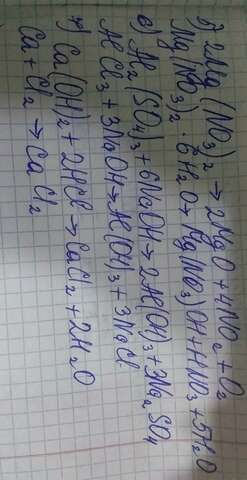 б) 2Mg(NO₃)₂ → 2MgO + 4NO₂ + O₂
Mg(NO₃)₂ · 6H₂O → Mg(NO₃)OH + HNO₃ + 5H₂O
в) Al₂(SO₄)₃ + 6NaOH → 2Al(OH)₃ + 3Na₂SO₄
AlCl₃ + 3NaOH → Al(OH)₃ + 3NaCl
г) Ca(OH)₂ + 2HCl → CaCl₂ + 2H₂O
Ca + Cl₂ → CaCl₂